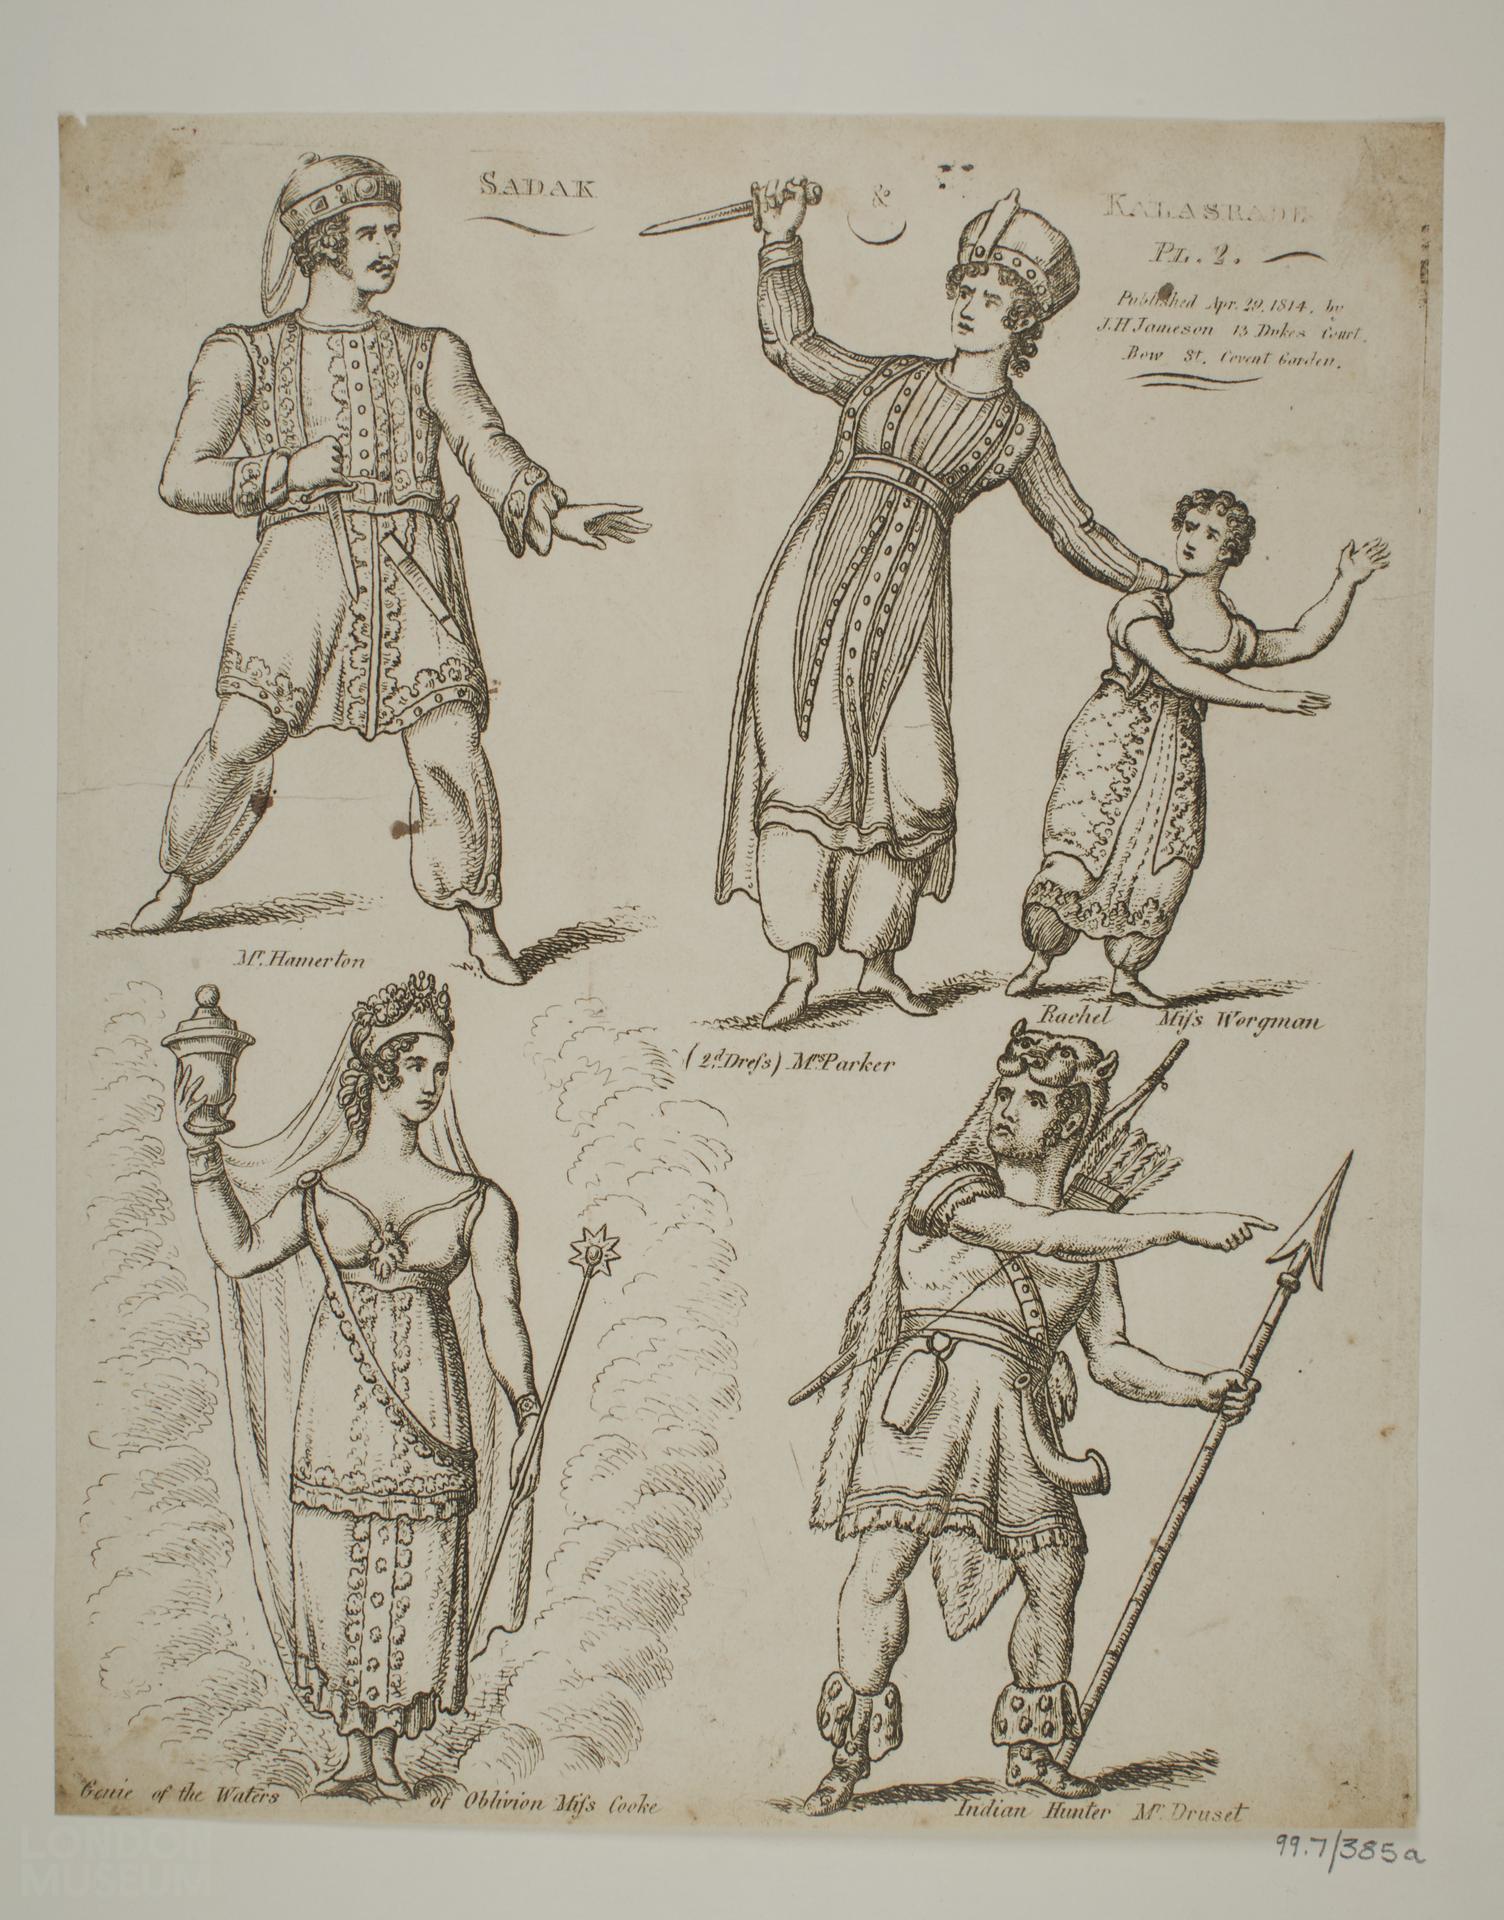 SADAK
&
KALASRADE
PL. 2.
Published Apr. 29. 1814, by
J.H Jameson 13 Dukes Court.
Bow St. Covent Garden.
Mr. Hamerton
Rachel Miſs Worgman
(2.d Dreſs) Mrs Parker
Genie of the Waters of Oblivion Miſs Cooke
Indian Hunter Mr. Druset
99.7/385a
LONDON
MUSEUM